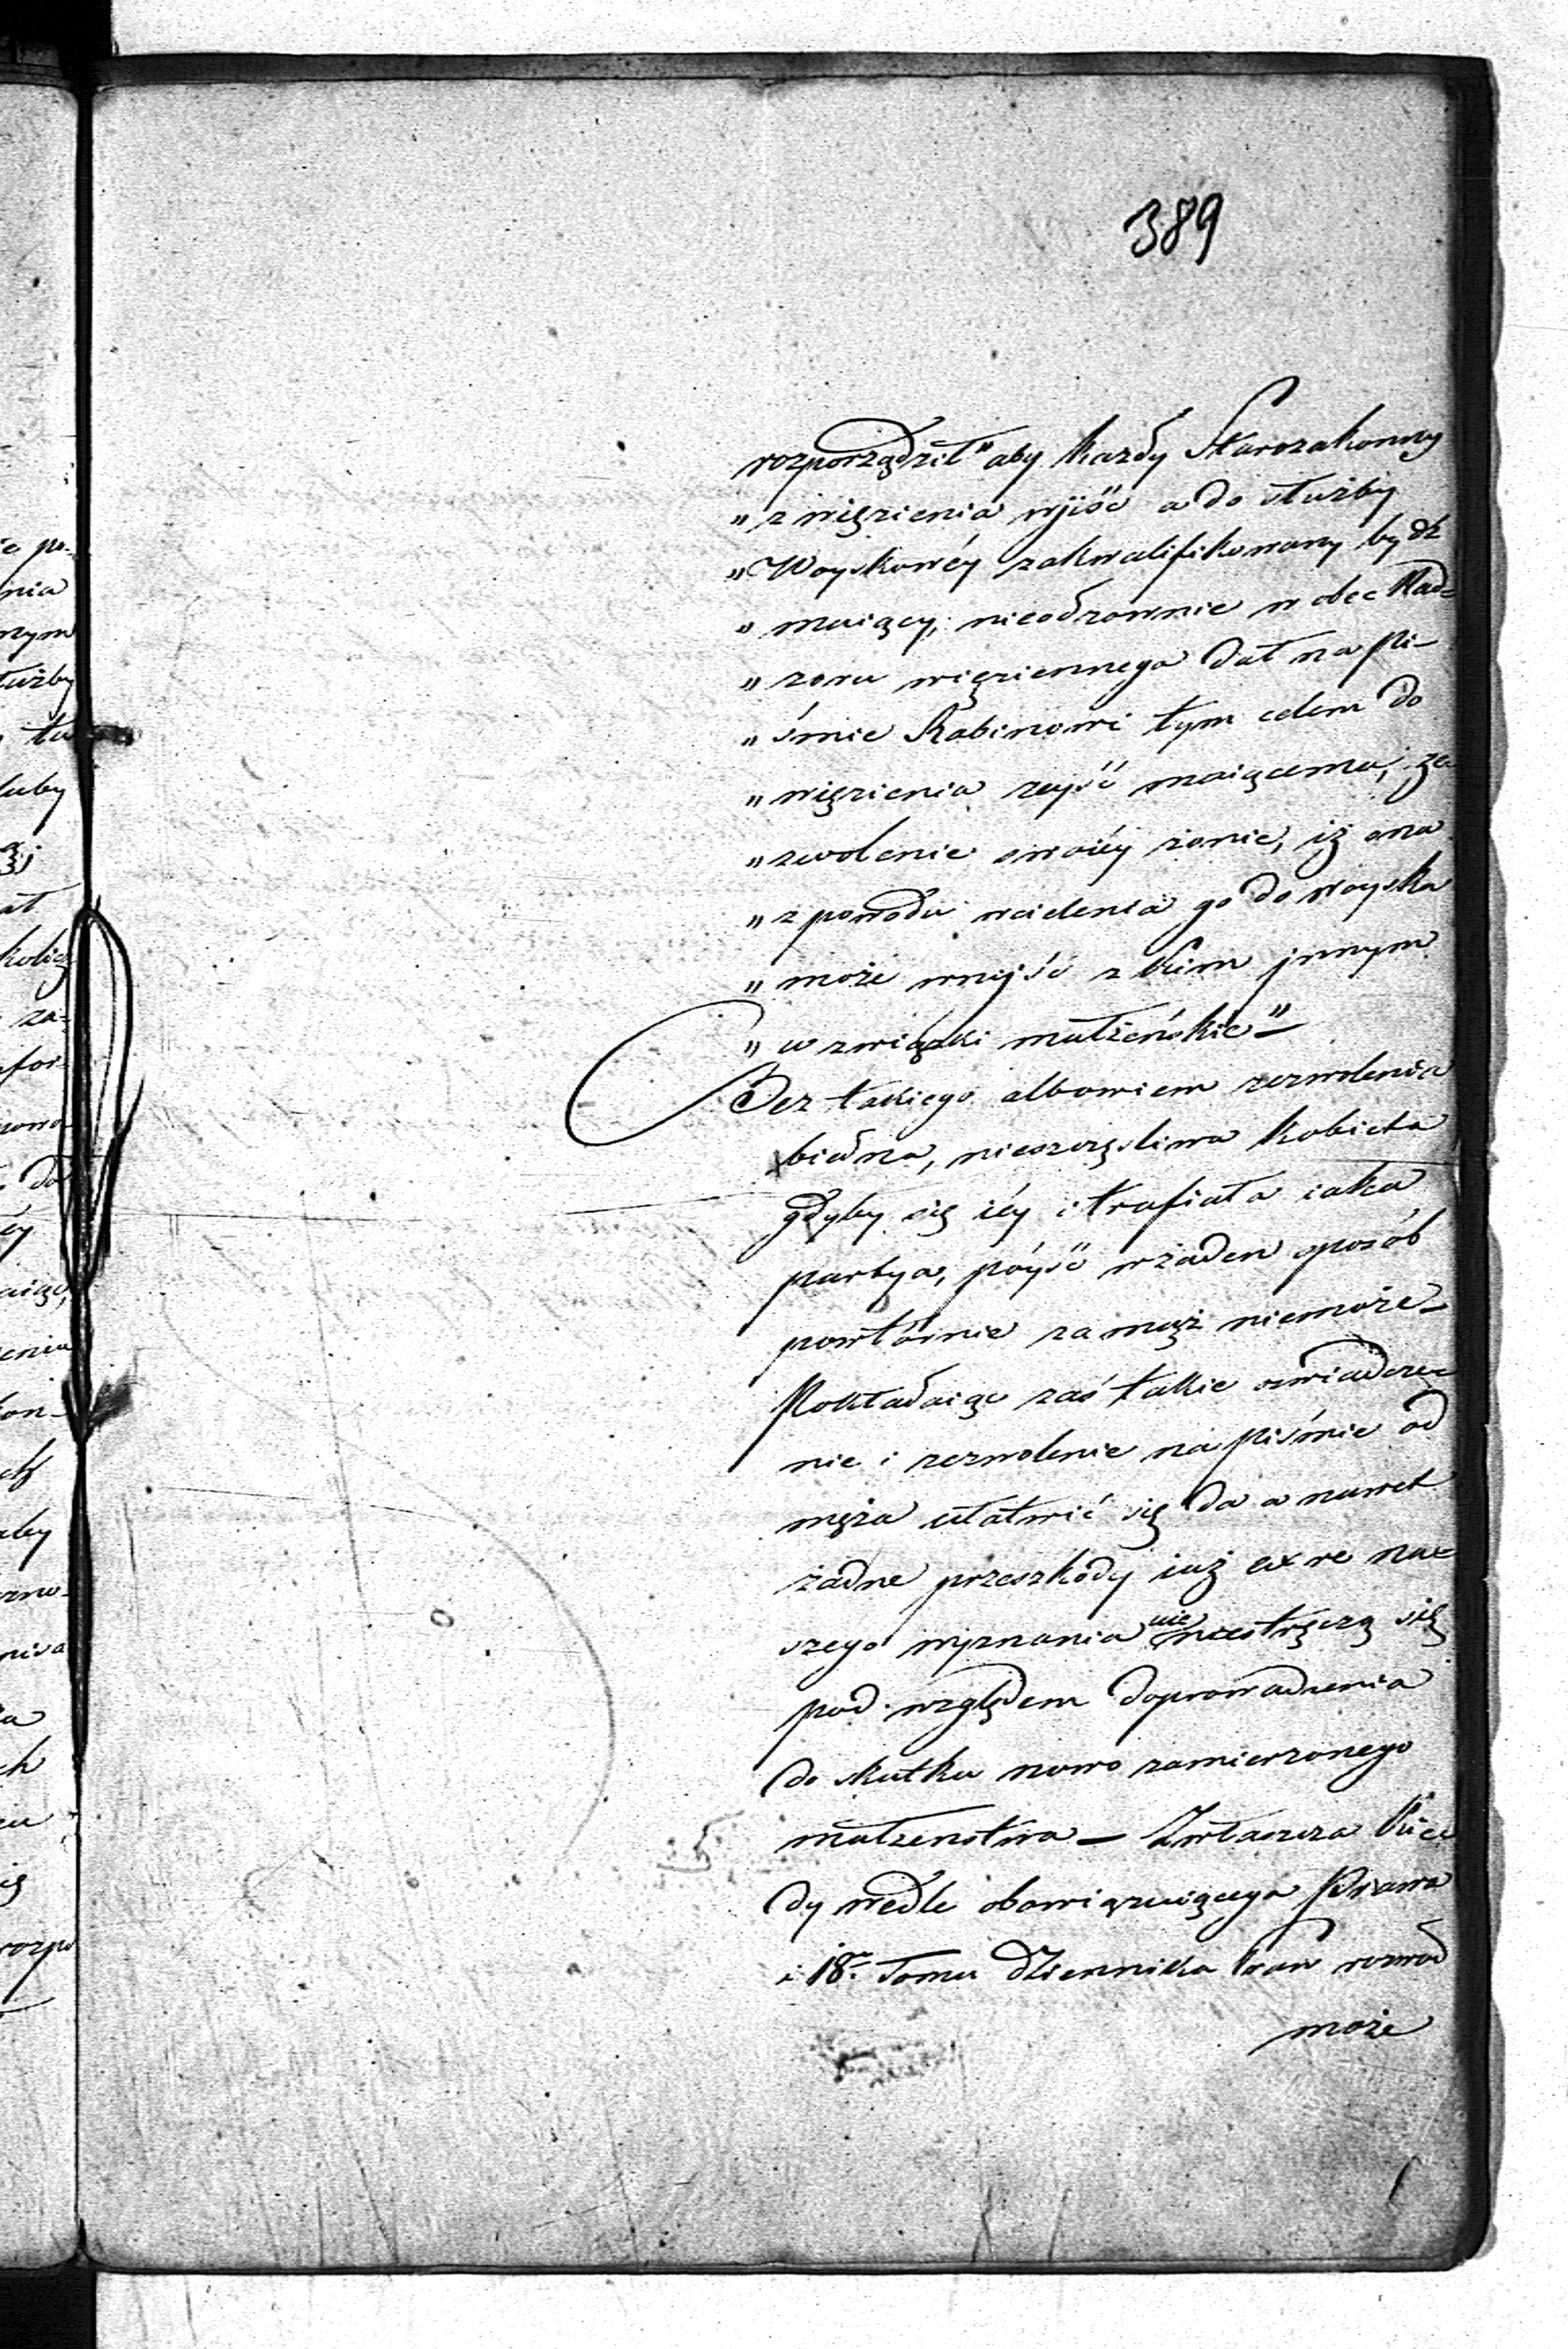 389
rozporządził "aby każdy Starozakonny
" z więzienia wyjść a do służby
" Woyskowéy zakwalifikowany bydź
" maiący, nieodzownie w obec Nad=
" zoru więziennego dał na pi-
" śmie Rabinowi tym celem do
" więzienia zeyść maiącemu, ze
" zwolenie swoiéy żonie, iż ona
" z powodu wcielenia go do woyska
" może wnijść z kim jnnym
" w związki małżeńskie" –
Bez takiego albowiem zezwolenia
biedna, nieszczęśliwa kobieta
gdyby się iéy i trafiała iaka
partya, póyść w żaden sposób
powtórnie za mąż niemoże –
Pokładaiąc zaś takie oświadcze=
nie i zezwolenie na piśmie od
męża ułatwić się da a nawet
żadne przeszkody iuż ex re na=
szego wyznania nie nastręczą się
pod względem doprowadzenia
do skutku nowo zamierzonego
małżenstwa – Zwłaszcza kie
dy wedle obowiązuiącego Prawa
i 18. Tomu Dziennika Praw rozwod
może